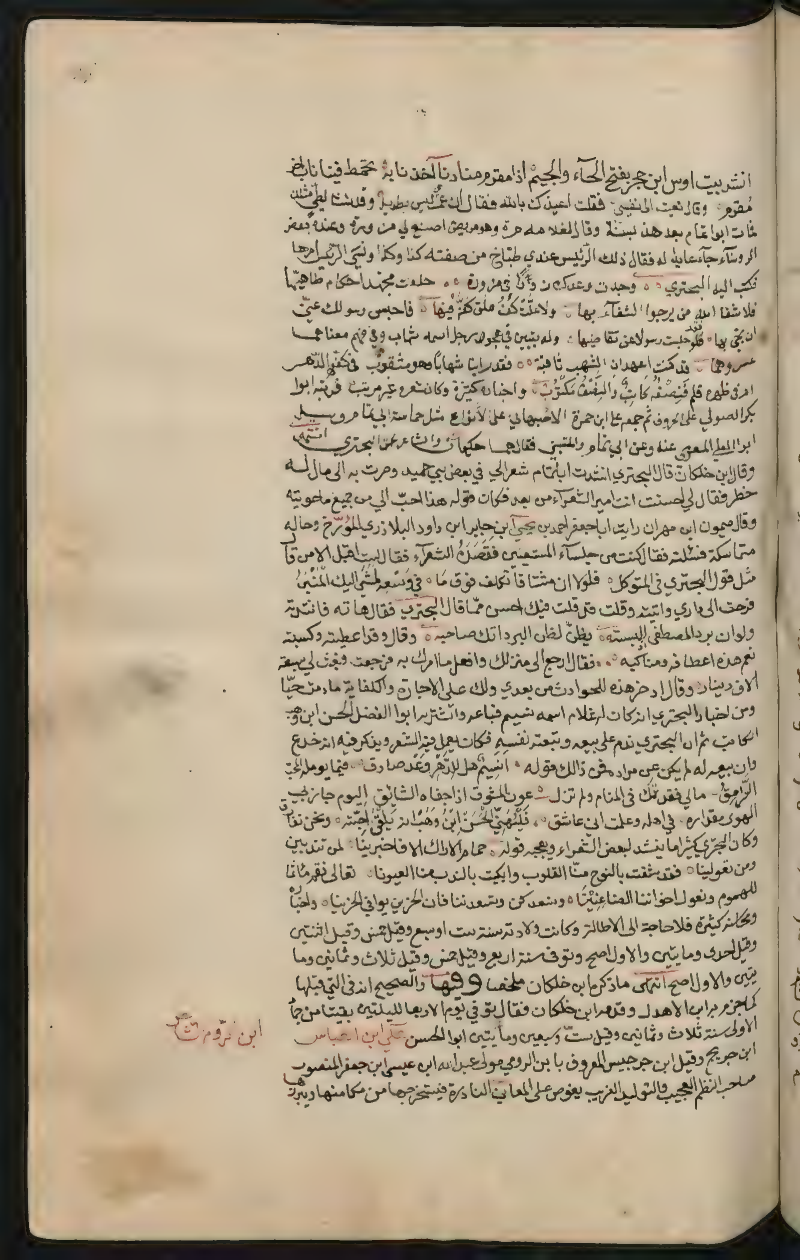 انشد بيت اوس ابن حجر بفتح الحاء والجيم اذا مقرم منا ذرا حد نابه تخمط فينا ناب اخر
مقرم وقال نعيت الى نفسي فقلت اعيذك بالله فقال ان عمري ليس بطويل وقد نشا لطي مثلك
فمات ابوا تمام بعد هذا بسنة وقال لغلامه مرة وهو مريض اصنع لي مزورة وعنده بعض
الروساء جاء عايدا له فقال ذلك الرئيس عندي طباخ من صفته كذا وكذا ونسي الرئيس امرها
فكتب اليه البحتري وجدت وعدك زورا في مزورة حلفت مجتهدا احكام طاهيها
فلا شفا الله من يرجوا الشفاء بها ولا علت كف ملق كفه فيها فاحبس رسولك عني
ان يجي بها فقد حبست رسولي عن تقاضيها وله بيتين في هجو رجل اسمه شهاب وفي فهم معناهما
عسر وهما قد كنت اعهد ان الشهب ثاقبة فقد راينا شهابا وهو مثقوب في كفه الدهر
ام في ظهره قلم فنصفه كاتب والنصف مكتوب واخباره كثيرة وكان شعره غير مرتب فرتبه ابوا
بكر الصولي على الحروف ثم جمعه علي ابن حمزة الاصبهاني على الانواع مثل حماسة ابي تمام وسئل
ابوا العلا المعري عنه وعن ابي تمام والمتنبي فقال هما حكيمان والشاعر البحتري انتهى
وقال ابن خلكان قال البحتري انشدت ابا تمام شعرا لي في بعض بني حميد وصرت به الى مال له
خطر فقال لي احسنت انت امير الشعراء من بعدي فكان قوله هذا احب الي من جميع ما حويته
وقال ميمون ابن مهران رايت ابا جعفر احمد بن يحيى ابن جابر ابن داود البلاذري المؤرخ وحاله
متماسكة فسئلته فقال كنت من جلساء المستعين فقصده الشعراء فقال لست اقبل الا من قا
مثل قول البحتري في المتوكل فلو ان مشتاقا تكلف فوق ما في وسعه لمشى اليك المنبر
فرجعت الى داري واتيته وقلت قد قلت فيك احسن مما قال البحتري فقال هاته فانشدته
ولو ان برد المصطفى اذ لبسته يظن لظن البرد انك صاحبه وقال وقد اعطيته ولبسته
نعم هذه اعطافه ومناكبه فقال ارجع الى منزلك وافعل ما امرك به فرجعت فبعث لي سبعة
الاف دينار وقال ادخر هذه للحوادث من بعدي ولك علي الاجارة والكفاية ما دمت حيا
ومن اخبار البحتري انه كان له غلام اسمه نسيم فباعه واشتراه ابوا الفضل الحسن ابن وهب
الكاتب ثم ان البحتري ندم على بيعه وتبعته نفسه فكان يعمل فيه الشعر ويذكر فيه انه خدع
وان بيعه له لم يكن عن مراده فمن ذالك قوله انسيم هل للدهر وعد صادق فيما يومله المحب
الوامق مالي فقدتك في المنام ولم تزل عون المشوق اذا جفاه الشائق اليوم جاز بي
الهوى مقداره في اهله وعلمت اني عاشق فليهني الحسن ابن وهب انه يلقى احبته ونحن نفارق
وكان البحتري كثيرا ما ينشد لبعض الشعراء ويعجبه قوله حمام الاراك الا فاخبرينا لمن تندبين
ومن تعولينا فقد شفت بالنوح منا القلوب وابكيت بالندب منا العيونا تعالي نقم ماتما
للهموم ونعول اخواننا الظاعنينا ونسعد كن وتسعدننا فان الحزين يوافي الحزينا واخباره
ومحاسنه كثيرة فلا حاجة الى الاطالة وكانت ولادته سنة ست او سبع وقيل خمس وقيل اثنتين
وقيل احدى ومايتين والاول اصح وتوفي سنة اربع وقيل خمس وقيل ثلاث وثمانين وما
يتين والاول اصح انتهى ما ذكره ابن خلكان ملخصا وفيها والصحيح انه في التي قبلها
كما جزم به ابن الاهدل وقدمه ابن خلكان فقال توفي يوم الاربعا لليلتين بقيتا من جما
الاولى سنة ثلاث وثمانين وقيل ست وسبعين ومايتين ابوا الحسن علي ابن العباس
ابن الرومي الشاعر
ابن جريج وقيل ابن جرجيس المعروف بابن الرومي مولى عبد الله ابن عيسى ابن جعفر المنصور
صاحب النظم العجيب والتوليد الغريب يغوص على المعاني النادرة فيستخرجها من مكامنها ويبرزها